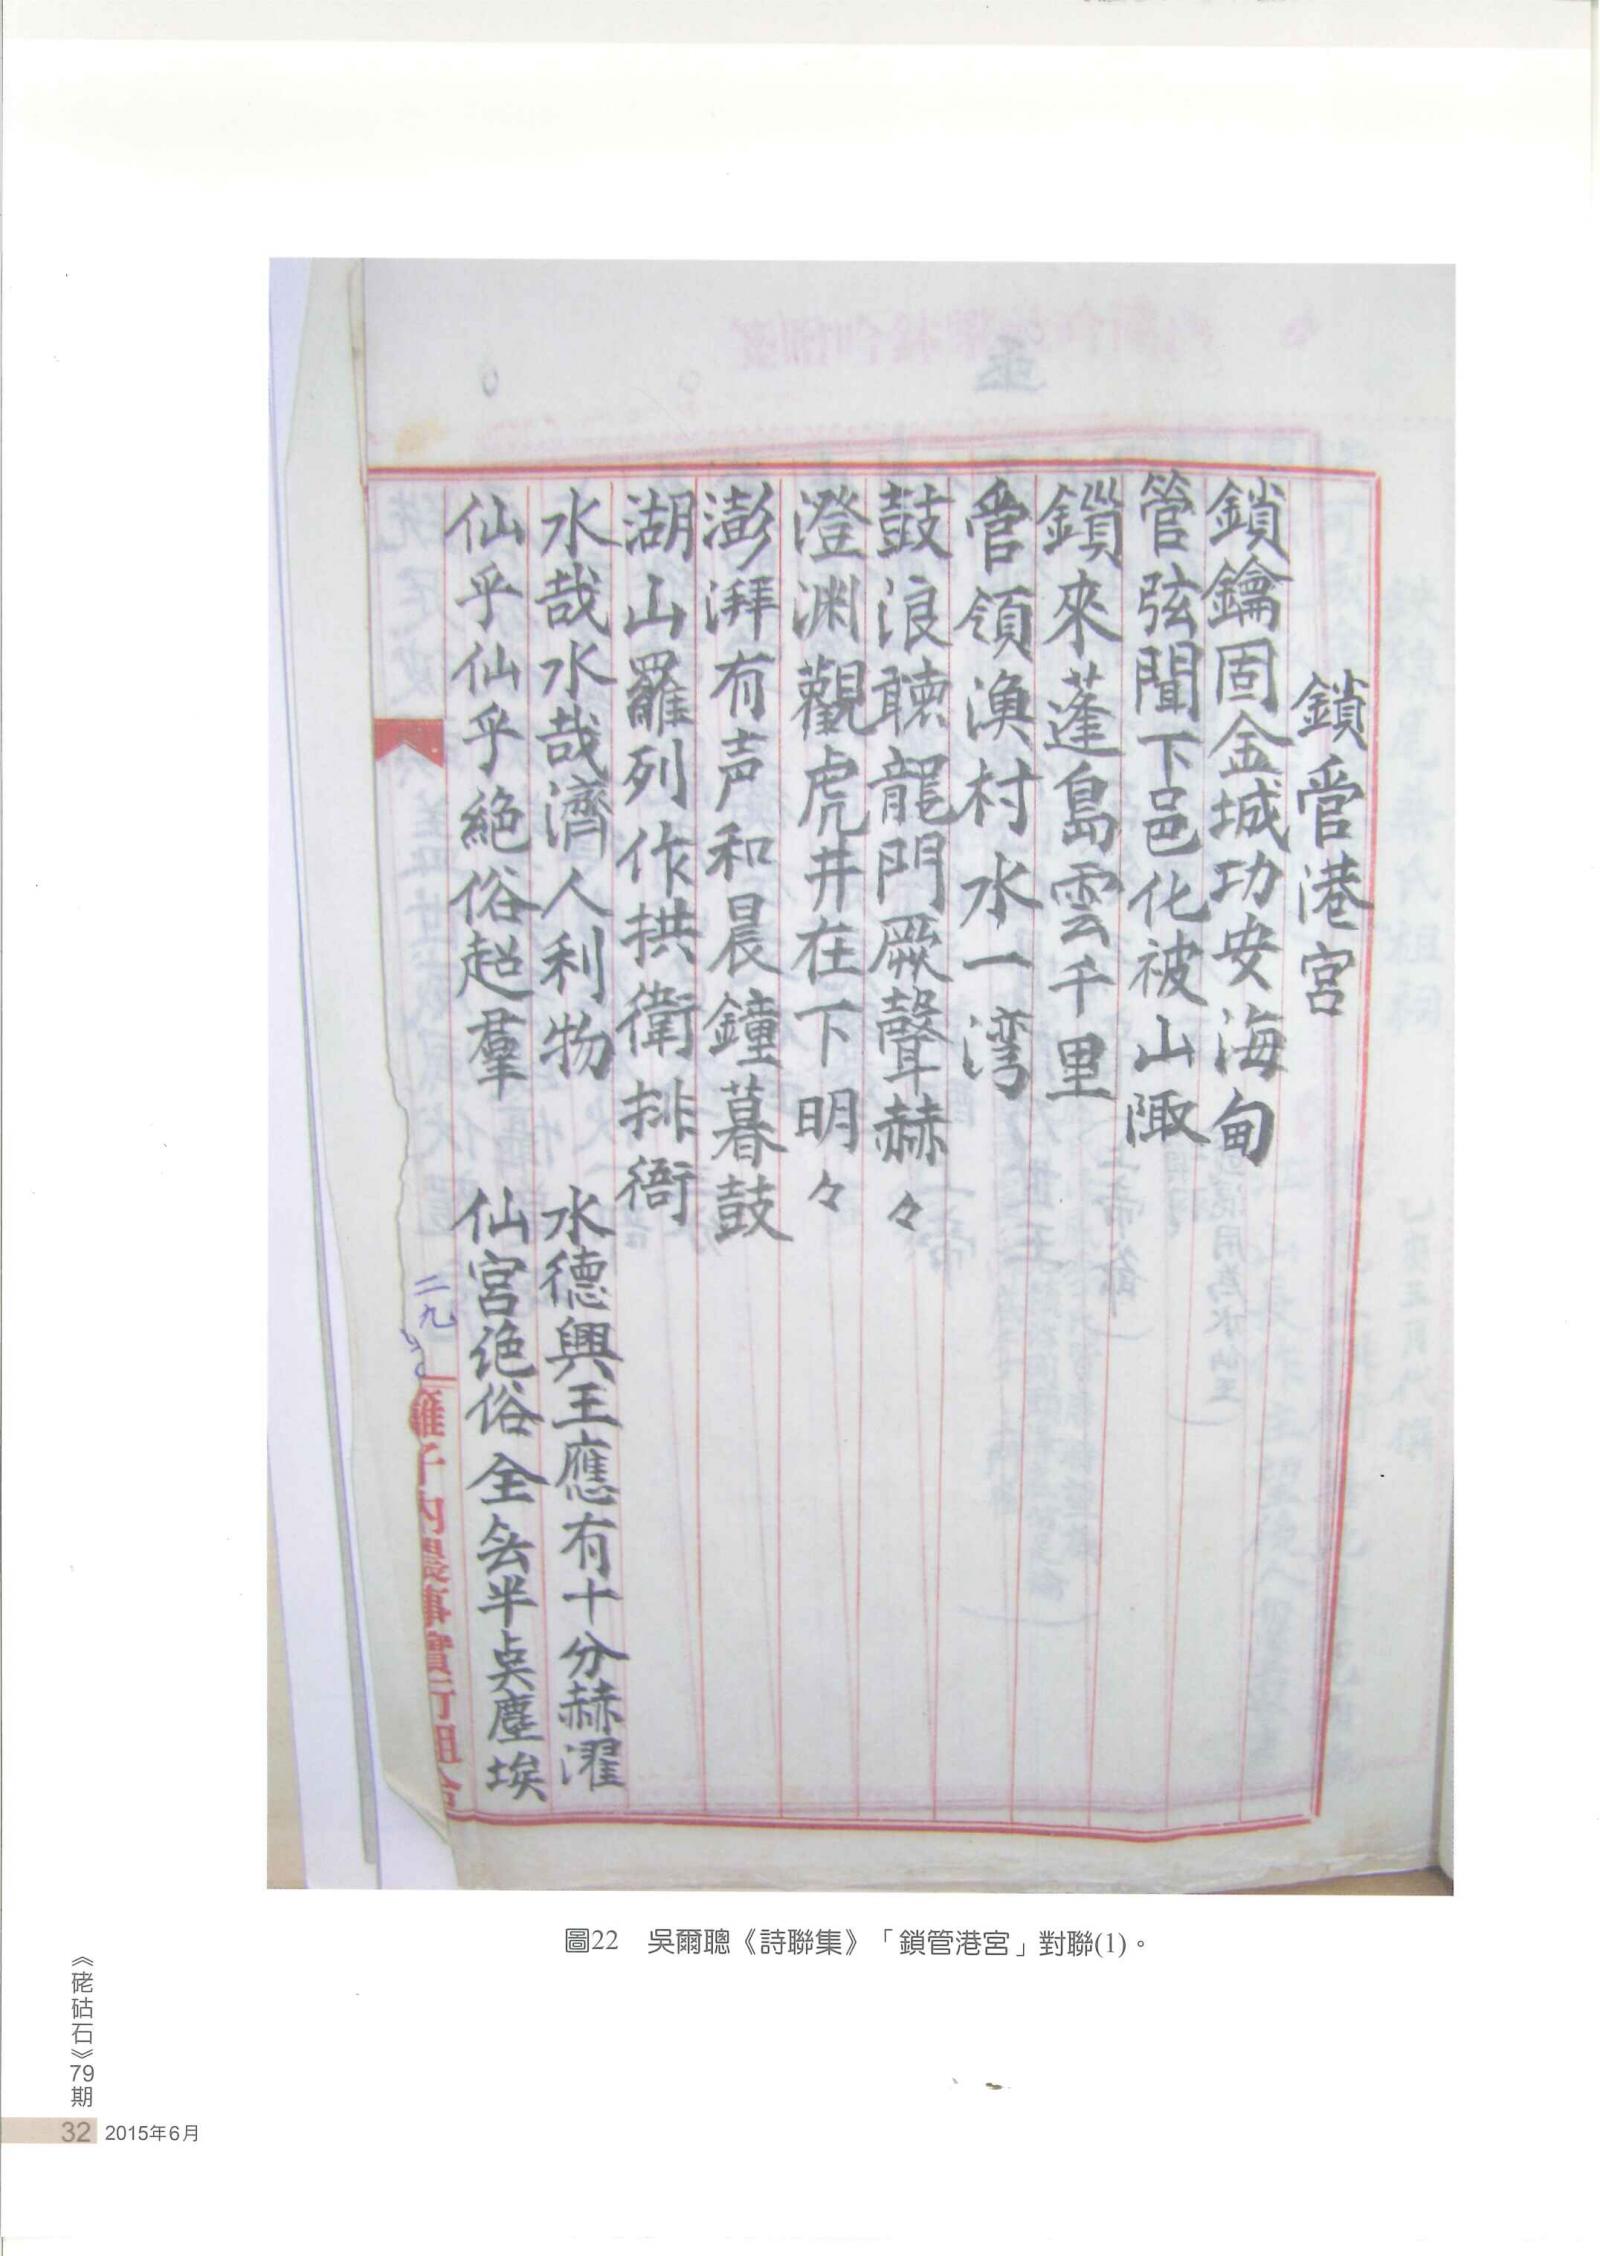 鎖管港宮
鎖鑰固金城功安海甸
管弦聞下邑化被山陬
鎖來蓬島雲千里
管領漁村水一湾
鼓浪聴龍門厥聲赫々
澄渊觀虎井在下明々
澎湃有声和晨鐘暮鼓
湖山羅列作拱衛排衙
水哉水哉濟人利物
水德興王應有十分赫濯
仙乎仙乎絕俗超羣
仙宮绝俗全无半点塵埃
二九
圖22 吳爾聰《詩聯集》「鎖管港宮」對聯(1)。
《硓𥑮石》79期
32 2015年6月